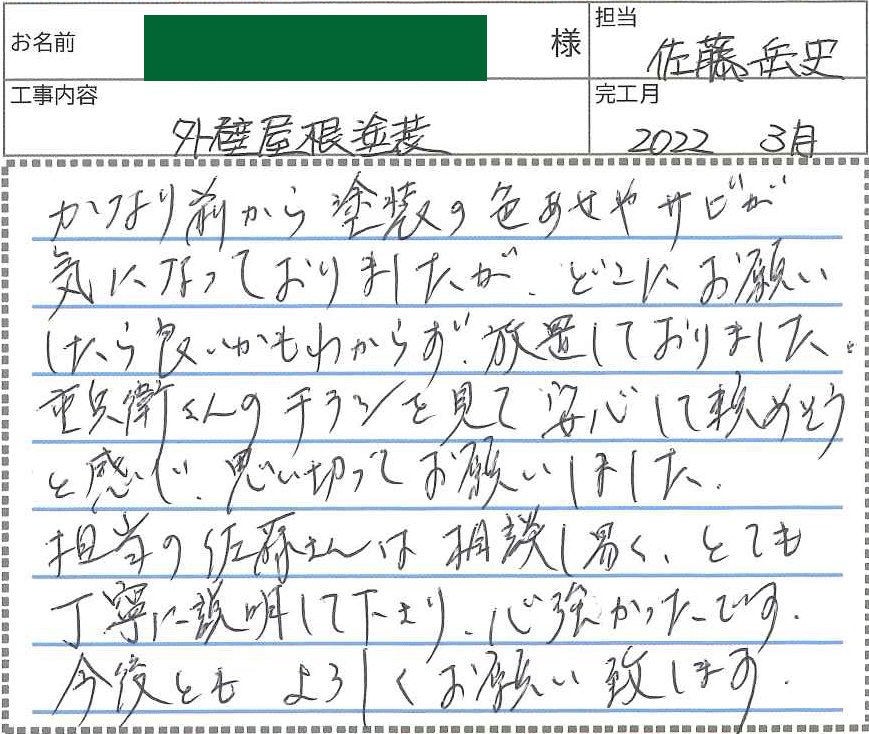 お名前
様
担当
佐藤岳史
工事内容
外壁屋根塗装
完工月
2022 3月
かなり前から塗装の色あせやサビが
気になっておりましたが、どこにお願い
したら良いかもわからず、放置しておりました。
重兵衛さんのチラシを見て安心して頼めそう
と感じ、思い切ってお願いしました。
担当の佐藤さんは相談し易く、とても
丁寧に説明して下さり、心強かったです。
今後ともよろしくお願い致します。